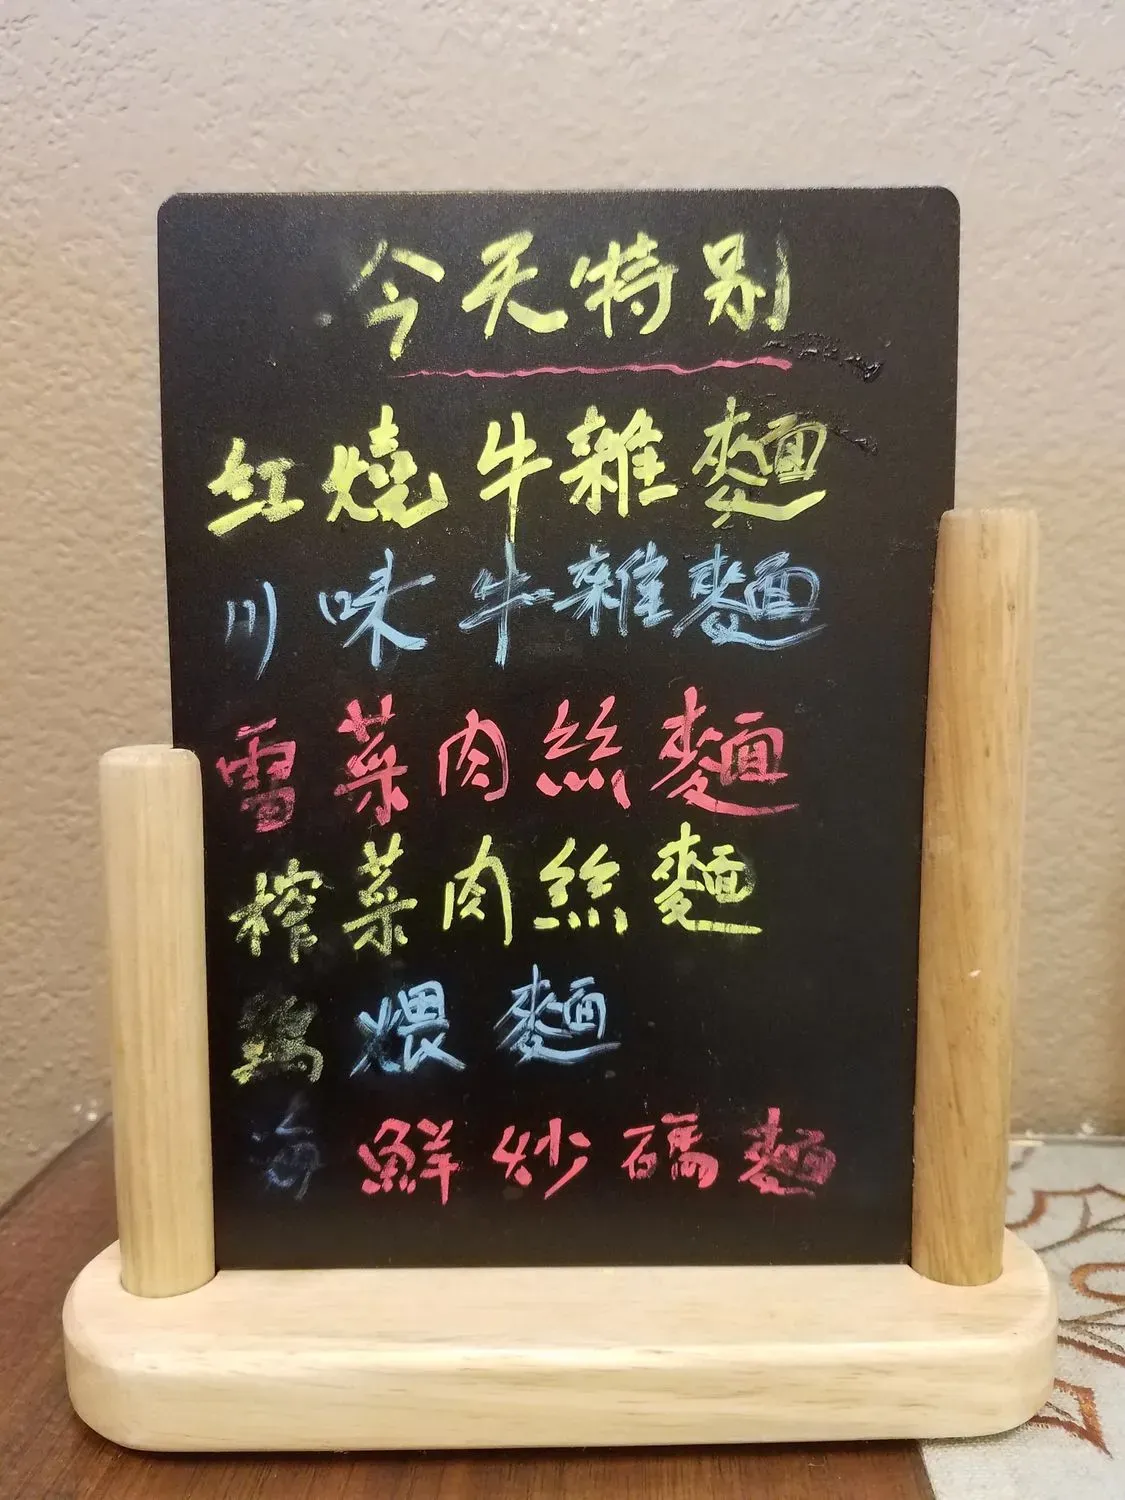 今天特别
红燒牛雜麵
川味牛雜麵
雪菜肉絲麵
榨菜肉絲麵
鷄煨麵
海鮮炒碼麵